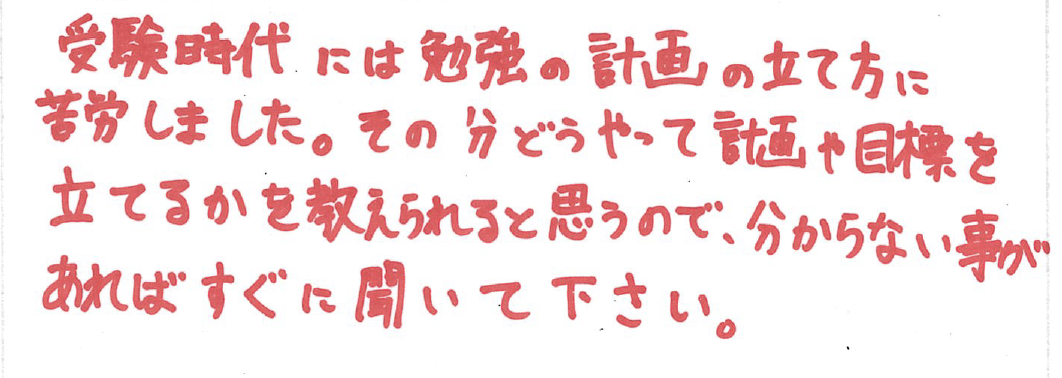 受験時代には勉強の計画の立て方に
苦労しました。その分どうやって計画や目標を
立てるかを教えられると思うので、分からない事が
あればすぐに聞いて下さい。